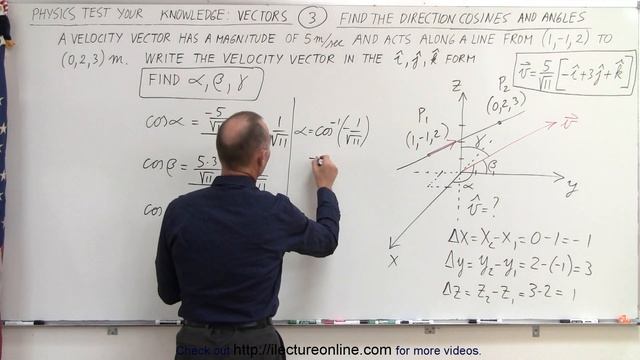 PHYSICS TEST YOUR KNOWLEDGE: VECTORS ③ FIND THE DIRECTION COSINES AND ANGLES
A VELOCITY VECTOR HAS A MAGNITUDE OF 5 m/sec AND ACTS ALONG A LINE FROM (1,-1,2) TO
(0,2,3) m. WRITE THE VELOCITY VECTOR IN THE î, ĵ, k̂ FORM
v⃗ = 5/√11 [-î+3ĵ+k̂]
FIND α, β, γ
cos α = -5/√11
1/√11
α = cos⁻¹(-1/√11)
cos β = 5·3/√11
cos
Z
P₂
(0,2,3)
P₁
(1,-1,2)
v⃗
γ
β
α
y
x
v̂ = ?
ΔX = X₂ - X₁ = 0 - 1 = -1
Δy = y₂ - y₁ = 2 - (-1) = 3
ΔZ = Z₂ - Z₁ = 3 - 2 = 1
Check out http://ilectureonline.com for more videos.